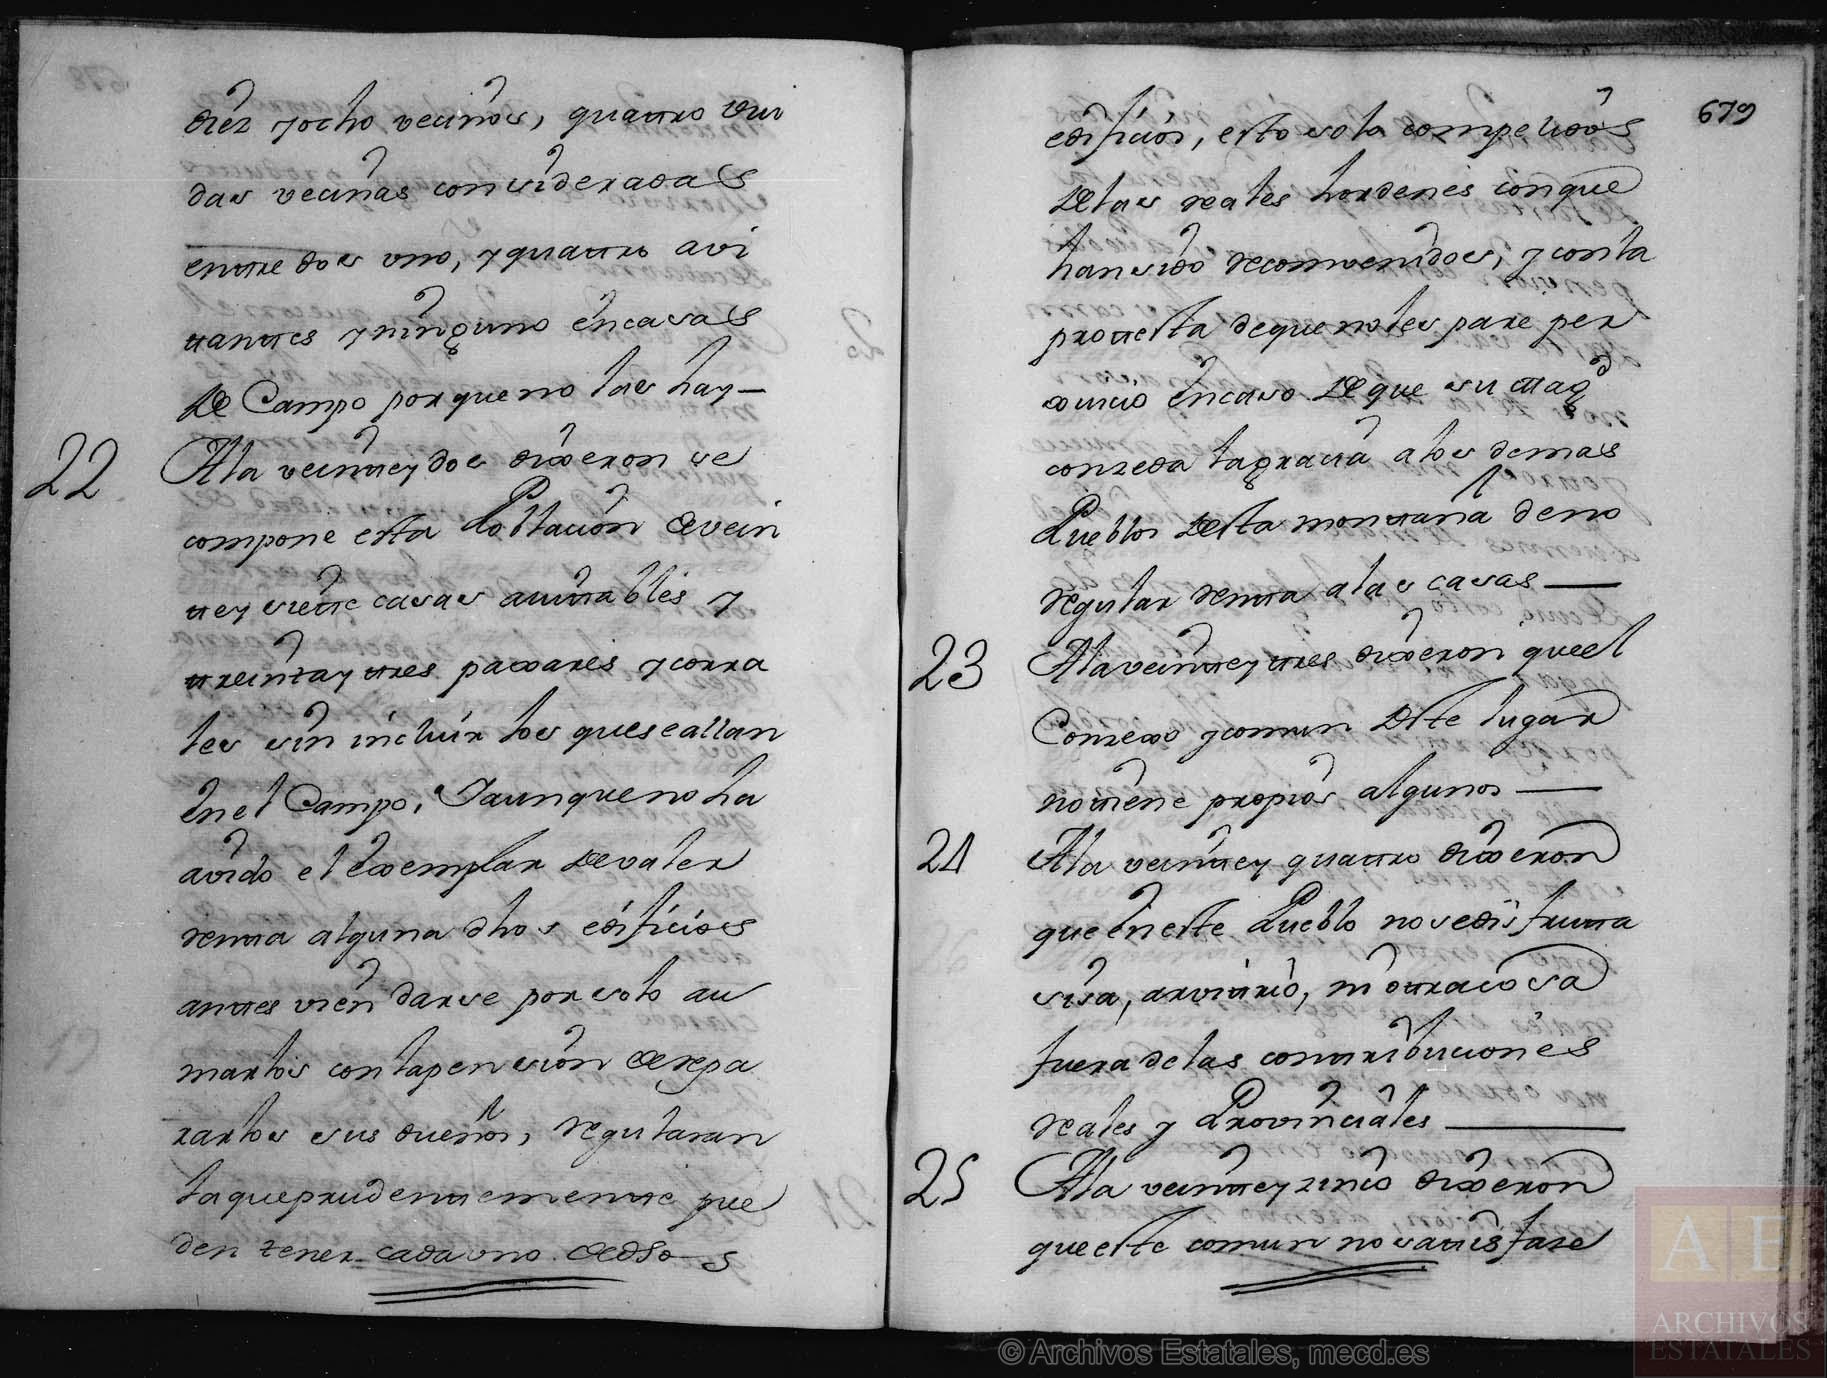 diez y ocho vecinos, quattro viu
das vecinas consideradas
enttre dos uno, y quattro avi
ttanttes y ninguno en casas
de Campo porque no las hay —
22 Ala veinttey dos dixeron se
compone esta Poblacion de vein
ttey siette casas avittables y
ttreintay ttres paxares y corra
les sin incluir los que se allan
en el Campo, Y aunque no ha
avido el exemplar de valer
rentta alguna dhos edificios
anttes vien darse por solo au
marlos con la pension de repa
rarlos sus dueños, regularan
la que prudenttementte pue
den tener cada uno de dho s
679
edificios, esto solo compelidos
de las reales hordenes con que
han sido reconvenidos, y con la
prottesta de que no les pare per
xuicio en caso de que su Magd
conzeda la gracia a los demas
Pueblos desta monttaña de no
regular rentta a las casas —
23 Ala veinttey ttres dixeron que el
Conzexo y comun deste lugar
no ttiene propios algunos —
24 Ala veinttey quattro dixeron
que en este Pueblo no se disfrutta
sisa, arvittrio, ni ottra cosa
fuera de las conttribuciones
reales y Provinciales —
25 Ala veinttey zinco dixeron
que este comun no sattisfaze
A E
ARCHIVOS
ESTATALES
© Archivos Estatales, mecd.es